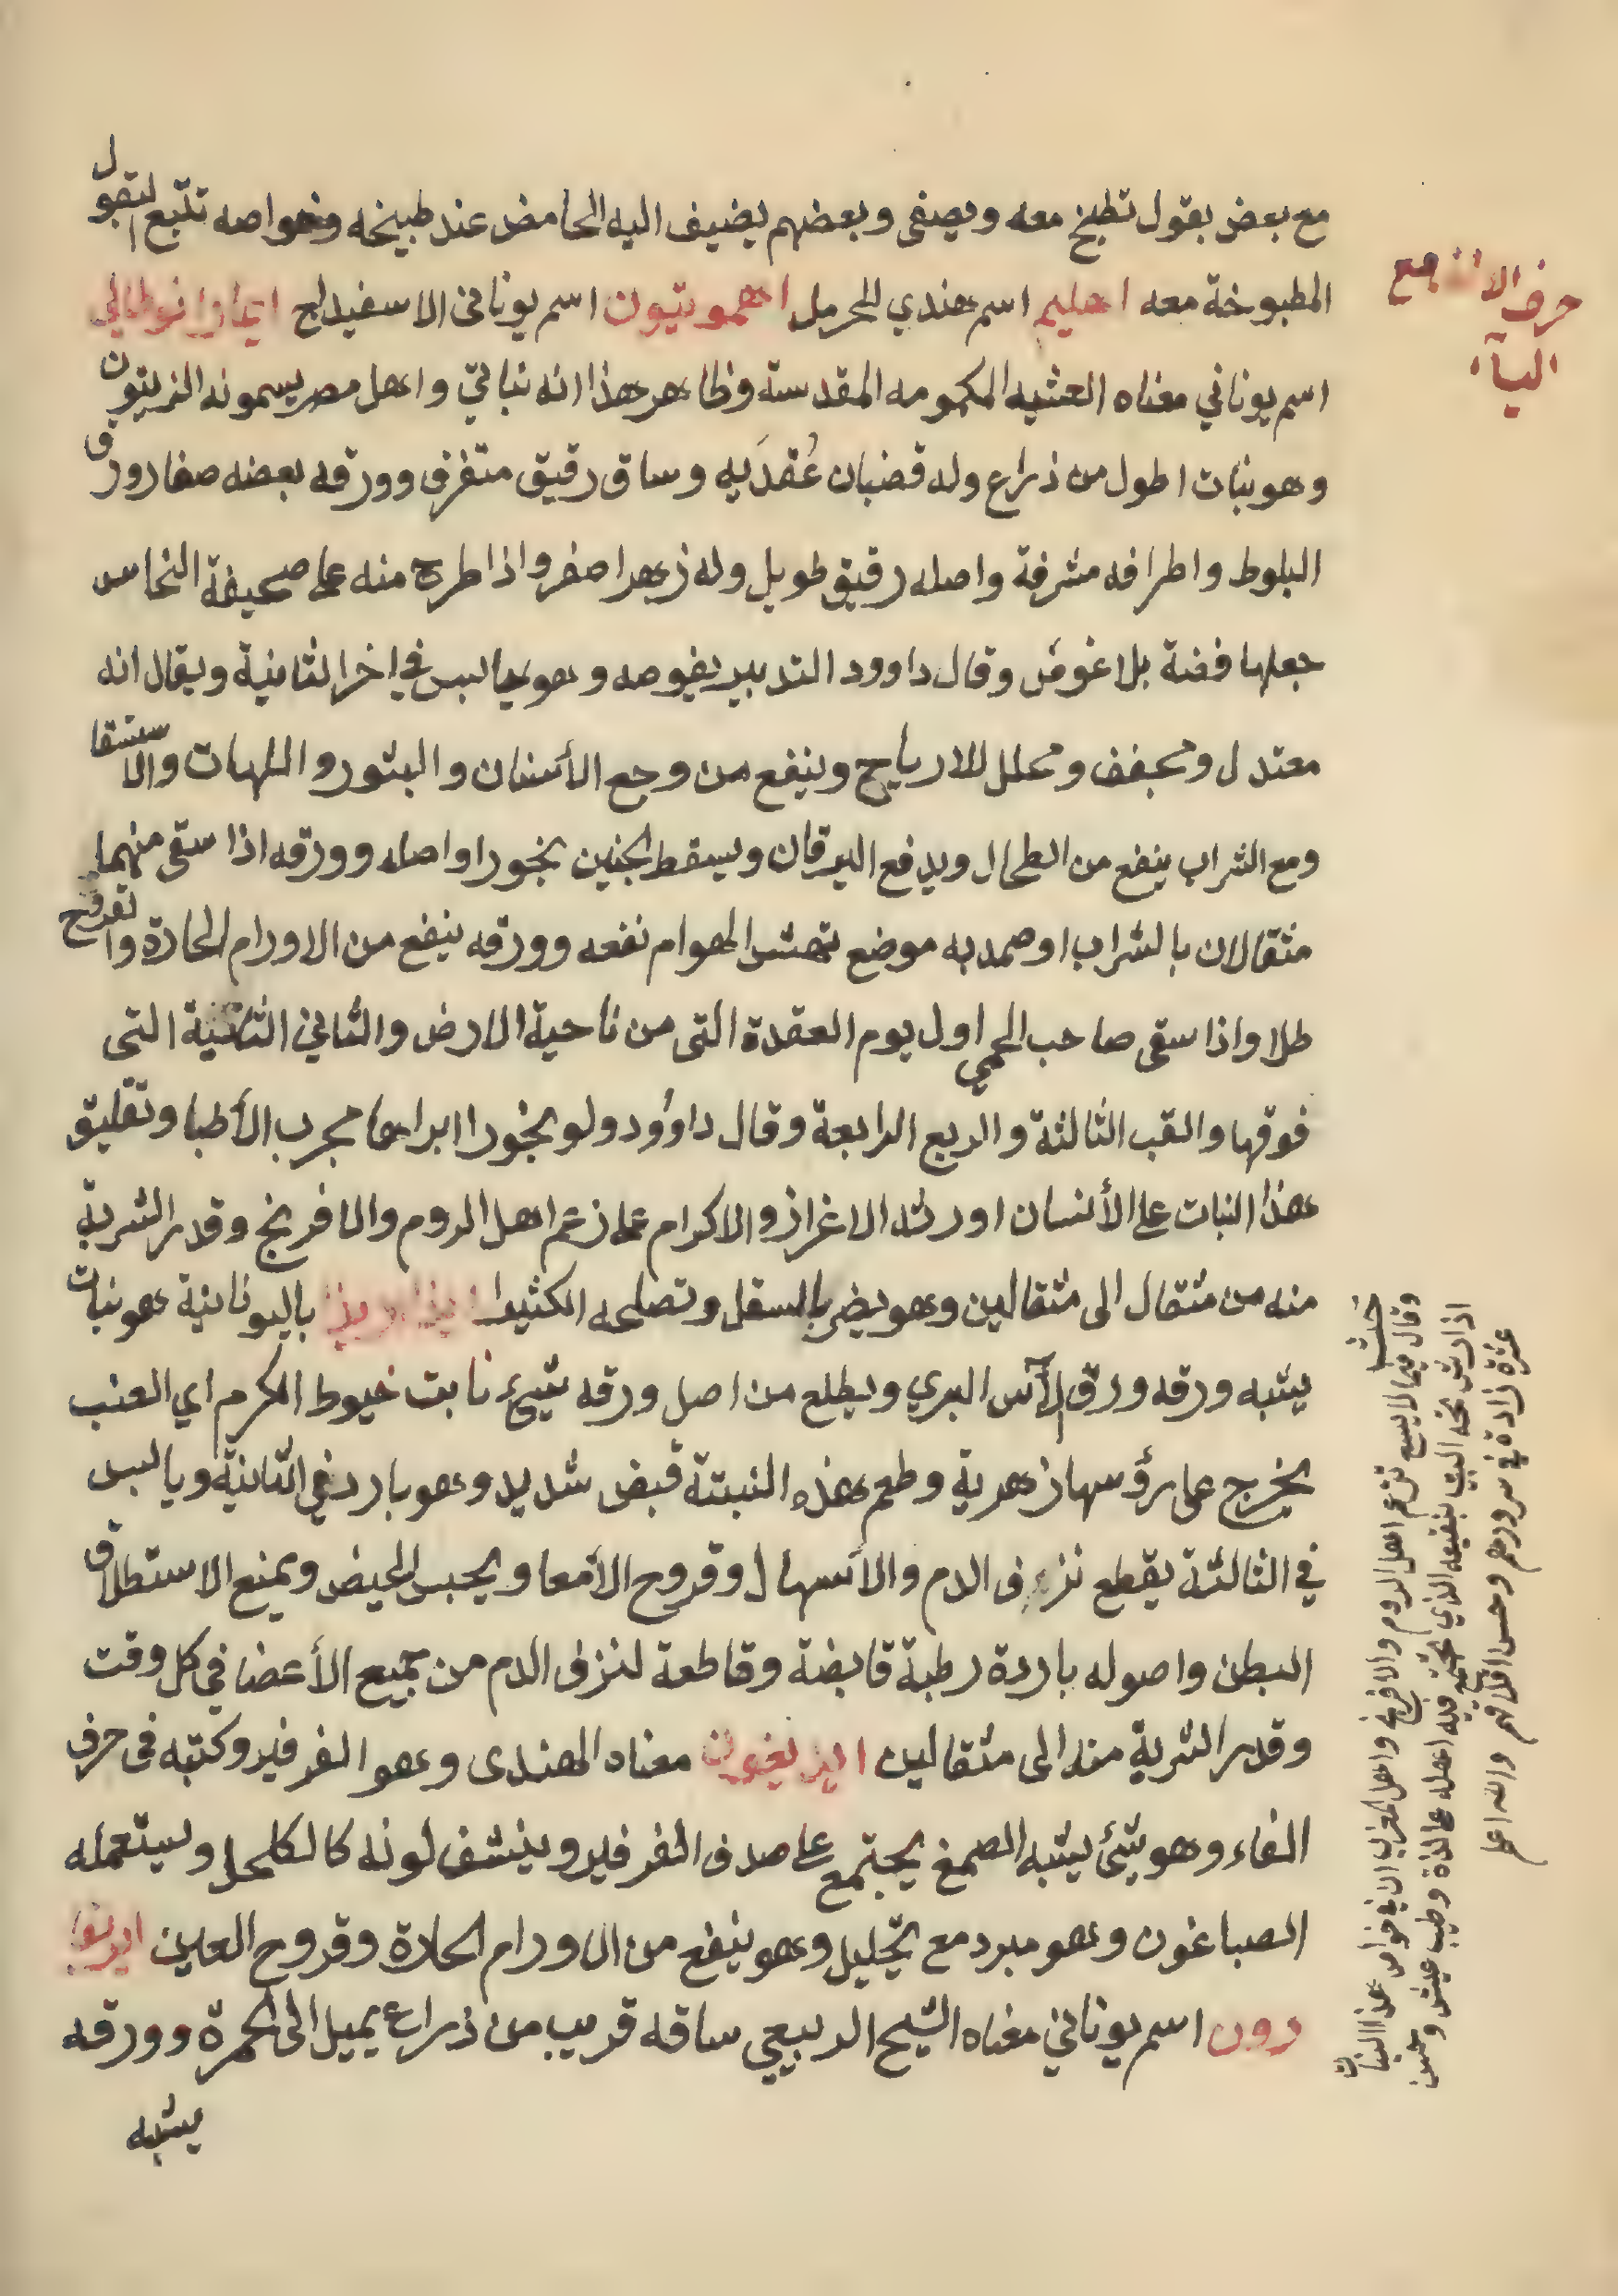 مع بعض بقول تطبخ معه ويصفى وبعضهم يضيف اليه الحامض عند طبيخه وخواصه تتبع البقول
المطبوخة معه اهليم اسم هندي للحرمل اهموتيون اسم يوناني الاسفيداج
اسم يوناني معناه العشبه المكمومه المقدسة وظاهر هذا انه نباتي واهل مصر يسمونه الزيتون
وهو نبات اطول من ذراع وله قضبان عُقدَيه وساق رقيق متفرق وورقه بعضه صغار ورق
البلوط واطرافه مشرفة واصله رقيق طويل وله زهر اصفر واذا طرح منه على صحيفة النحاس
جعلها فضة بلا غوص وقال داوود التدبير يغوصه وهو يابس في اخر الثانية ويقال انه
معتدل ومجفف ومحلل للارياح وينفع من وجع الأسنان والبثور واللهات والاستسقا
ومع الشراب ينفع من الطحال ويدفع اليرقان ويسقط الجنين بخورا واصله وورقه اذا سقى منهما
مثقالان بالشراب او ضمد به موضع نهش الهوام نفعه وورقه ينفع من الاورام الحارة والقروح
طلا واذا سقى صاحب الحمي اول يوم العقدة التى من ناحية الارض والثاني الثانية التى
فوقها والغب الثالثة والربع الرابعة وقال داوُود ولو بخورا ابراها مجرب الأطبا وتعليق
هذا النبات على الأنسان اورثه الاعزاز والاكرام على زعم اهل الروم والافرنج وقدر الشربة
منه من مثقال الى مثقالين وهو يضر بالسفل وتصلحه الكثيرا باليونانية هو نبات
يشبه ورقه ورق الآس البري ويطلع من اصل ورقه شيئ نابت خيوط الكرم اي العنب
يخرج على رؤسها زهرية وطعم هذه النبتة قبض شديد وهو بارد في الثانية ويابس
في الثالثة يقطع نزف الدم والأسهال وقروح الأمعا ويحبس الحيض ويمنع الاستطلاق
البطن واصوله باردة رطبة قابضة وقاطعة لنزف الدم من جميع الأعضا في كل وقت
وقدر الشربة منه الى مثقالين معناه الهندى وهو الفرفير وكتبه فى حرف
الفاء وهو شئ يشبه الصمغ يجتمع على صدف الفرفير وينشف لونه كالكحل ويستعمله
الصباغون وهو مبرد مع تحليل وهو ينفع من الاورام الحارة وقروح العين
رون اسم يوناني معناه الشيح الربيعي ساقه قريب من ذراع يميل الى الحمرة وورقه
يشبه
حرف الالف مع
اليآء
وقال فيما لا يسع تزعم اهل الروم والافرنج واهل المغرب ان في خواص هذا النبات
اذا رش تحته البيت بنقيعه الذي فيه اهله على لذة وطيب عيش وحسن
عزة زادة في سرورهم وحسن اخلاقهم والله اعلم